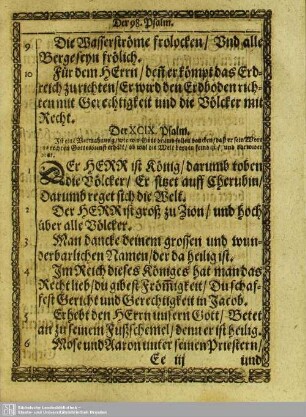 Der 98. Psalm.
9 Die Wasserströme frolocken/ Vnd alle
Berge seyn frölich.
10 Für dem HErrn/ deñ er kömpt das Erd-
reich zu richten/ Er wird den Erdboden rich-
ten mit Gerechtigkeit und die Völcker mit
Recht.
Der XCIX. Psalm.
1 DEr HERR ist König/ darumb toben
die Völcker/ Er sitzet auff Cherubin/
Darumb reget sich die Welt.
2 Der HERR ist groß zu Zion/ und hoch
über alle Völcker.
3 Man dancke deinem grossen und wun-
derbarlichen Namen/ der da heilig ist.
4 Im Reich dieses Königes hat man das
Recht lieb/ du gibest Frömigkeit/ Du schaf-
fest Gericht und Gerechtigkeit in Jacob.
5 Erhebt den HErrn unsern Gott/ Betet
an zu seinem Fußschemel/ denn er ist heilig.
6 Mose und Aaron unter seinen Priestern/
Ee iij und